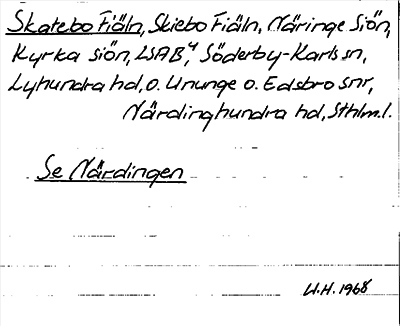 Skatebo Fiäln, Skiebo Fiäln, Näringe Siön,
Kyrka siön, LSAB⁴, Söderby-Karls sn,
Lyhundra hd, o. Ununge o. Edsbro snr,
Närdinghundra hd, Sthlm.l.
Se Närdingen
U.H. 1968